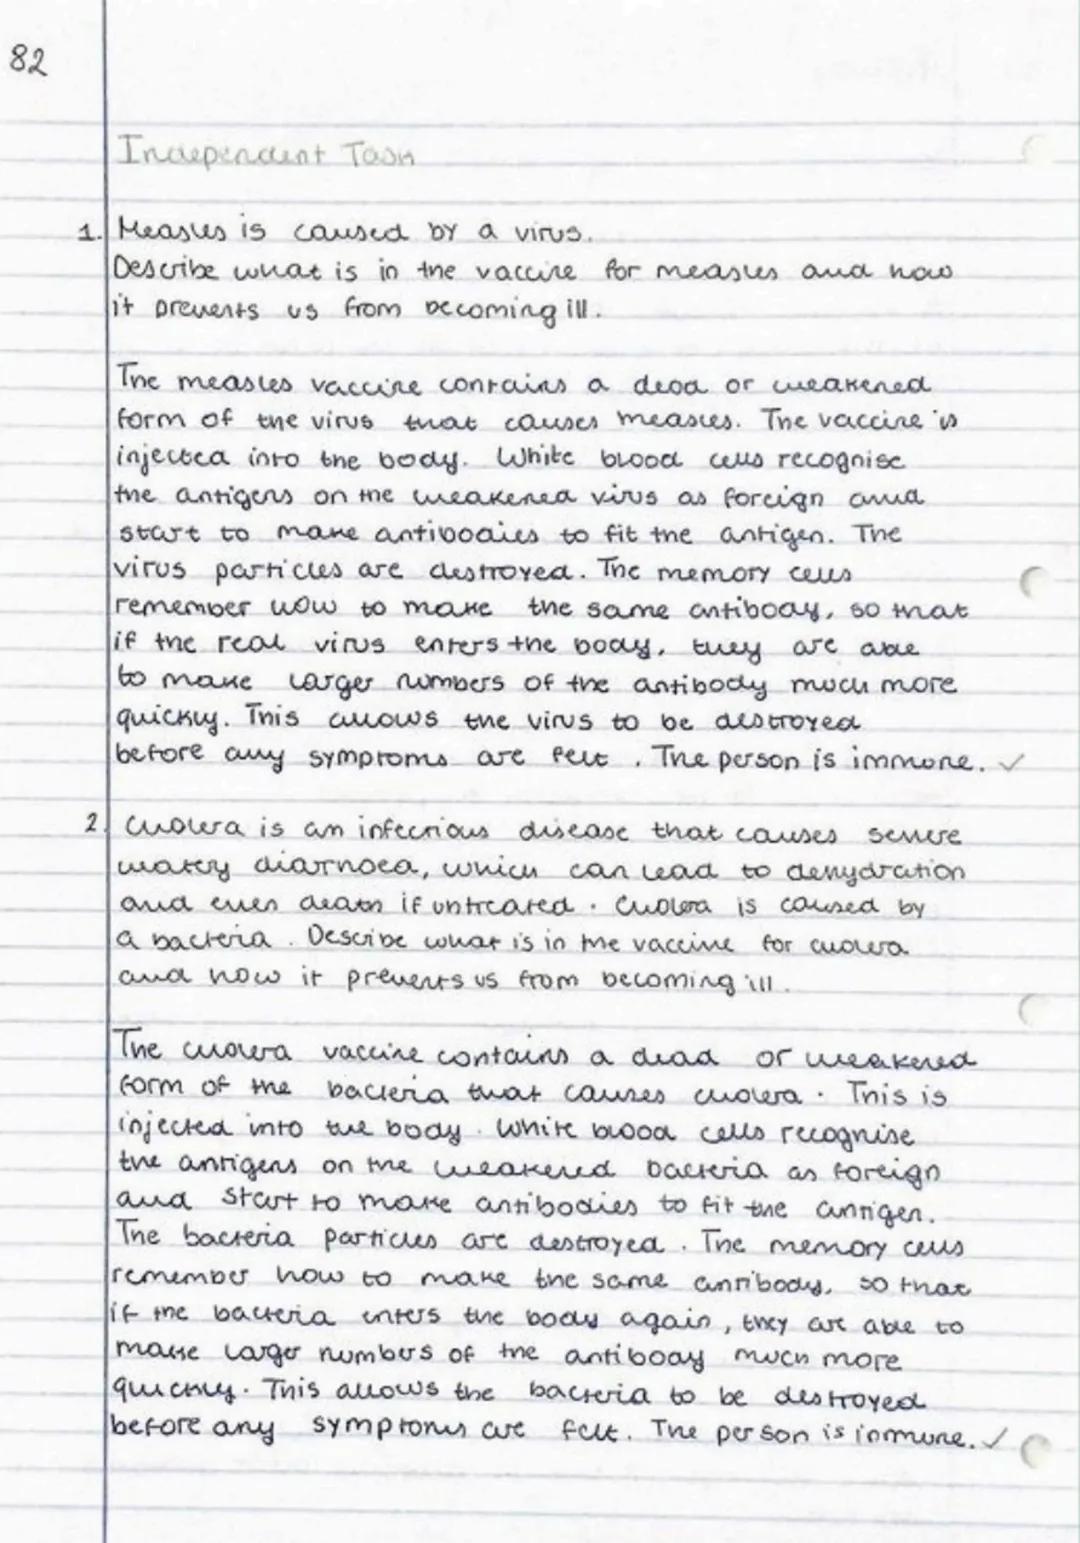 82
Independent Task
1. Measles is caused by a virus.
Describe what is in the vaccine for measles and how
it prevents us from becoming ill.
The measles vaccine contains a dead or weakened
form of the virus that causes measles. The vaccine is
injected into the body. White blood cells recognise
the antigens on the weakened virus as foreign and
start to make antibodies to fit the antigen. The
virus particles are destroyed. The memory cells
remember how to make the same antibody, so that
if the real virus enters the body, they are able
to make larger numbers of the antibody much more
quickly. This allows the virus to be destroyed
before any symptoms are felt. The person is immune. ✓
2. Cholera is an infectious disease that causes severe
watery diarrhoea, which can lead to dehydration
and even death if untreated. Cholera is caused by
a bacteria. Describe what is in the vaccine for cholera
and how it prevents us from becoming ill.
The cholera vaccine contains a dead or weakened
form of the bacteria that causes cholera. This is
injected into the body. White blood cells recognise
the antigens on the weakened bacteria as foreign
and start to make antibodies to fit the antigen.
The bacteria particles are destroyed. The memory cells
remember how to make the same antibody, so that
if the bacteria enters the body again, they are able to
make larger numbers of the antibody much more
quickly. This allows the bacteria to be destroyed
before any symptoms are felt. The person is immune. ✓